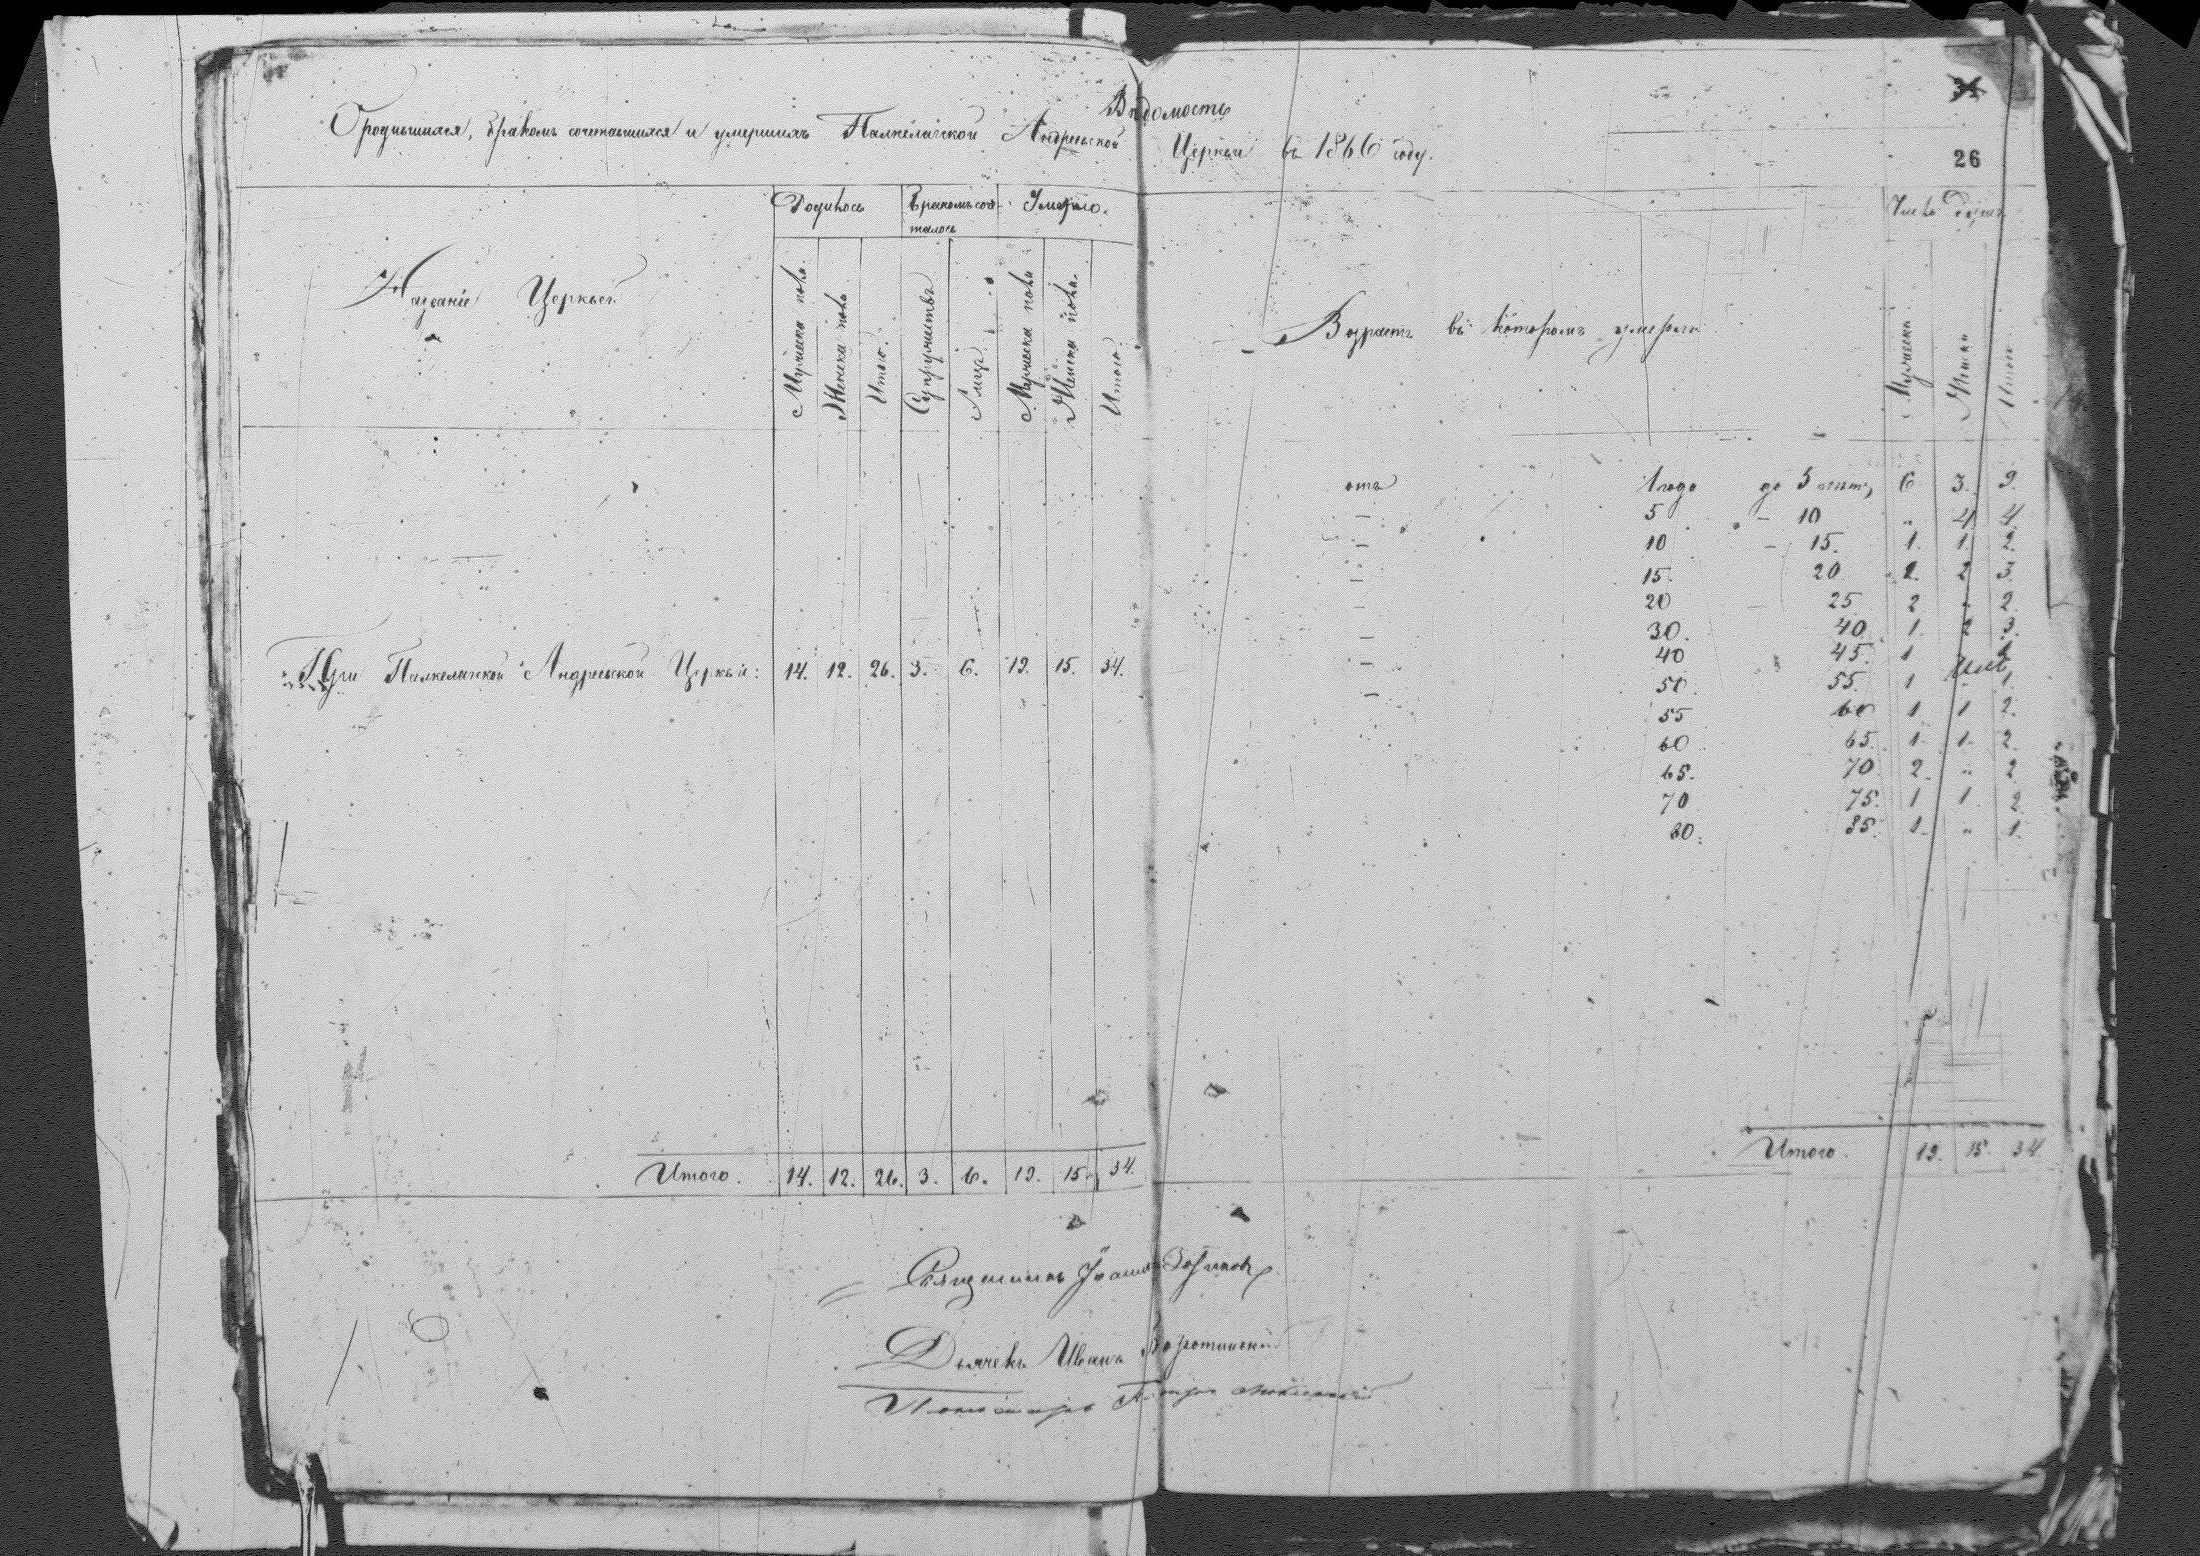 Вѣдомость
О родившихся, бракомъ сочетавшихся и умершихъ Палкелагской Андреевской Церкви въ 1866 году.
26
Родилось Бракомъ соче-талось Умерло. Число душъ
Названіе Церквей
Мужеска пола. Женска пола Итого. Супружествъ Лицъ. Мужеска пола Женска пола. Итого
Возрастъ въ которомъ умерли Мужеска Женска Итого
отъ 1 года до 5 лѣтъ, 6 3. 9.
— 5 — 10 „ 4 4
— 10 — 15. 1. 1. 2.
— 15. 20 2. 3.
— 20 — 25 2 „ 2.
— 30. 40 1. 2 3.
— 40 45. 1
— 50. 55. 1 1.
55 60 1 1 2.
60 65. 1. 1. 2.
65. 70 2. „ 2
70 75. 1 1. 2
80. 85. 1. „ 1.
При Палкелагской Андреевской Церкви: 14. 12. 26. 3. 6. 19. 15. 34.
Итого. 14. 12. 26. 3. 6. 19. 15. 34.
Итого. 19. 15. 34
Священникъ Іоаннъ
Дьячекъ Иванъ
Пономарь Петръ